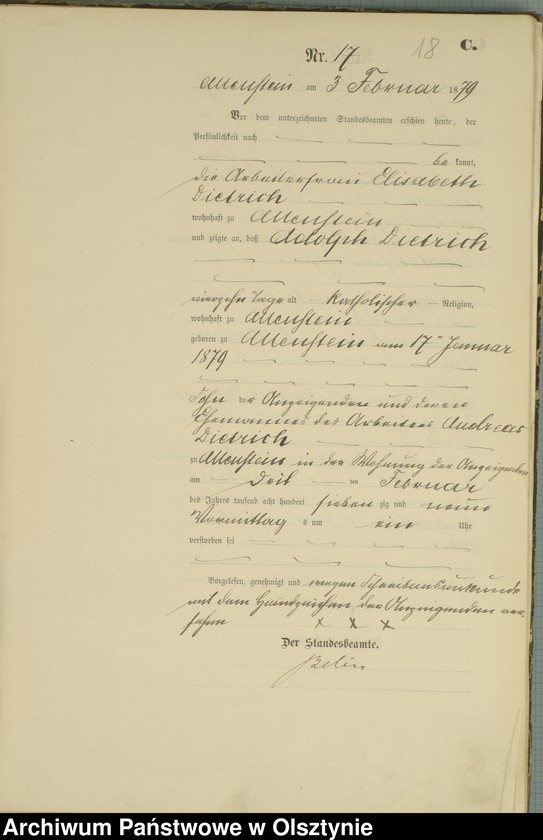 18 C.
Nr. 17
Allenstein am 3 Februar 1879
Vor dem unterzeichneten Standesbeamten erschien heute, der
Persönlichkeit nach
be kannt,
die Arbeiterfrau Elisabeth
Dietrich
wohnhaft zu Allenstein
und zeigte an, daß Adolph Dietrich
vierzehn Tage alt katholischer Religion,
wohnhaft zu Allenstein
geboren zu Allenstein am 17ten Januar
1879
Sohn der Anzeigenden und deren
Ehemannes des Arbeiters Andreas
Dietrich
zu Allenstein in der Wohnung der Anzeigenden
am ten Februar
des Jahres tausend acht hundert sieben zig und neun
Vormittag s um ein Uhr
verstorben sei
Vorgelesen, genehmigt und wegen Schreibensunkunde
mit dem Handzeichen der Anzeigenden ver-
sehen x x x
Der Standesbeamte.
Archiwum Państwowe w Olsztynie